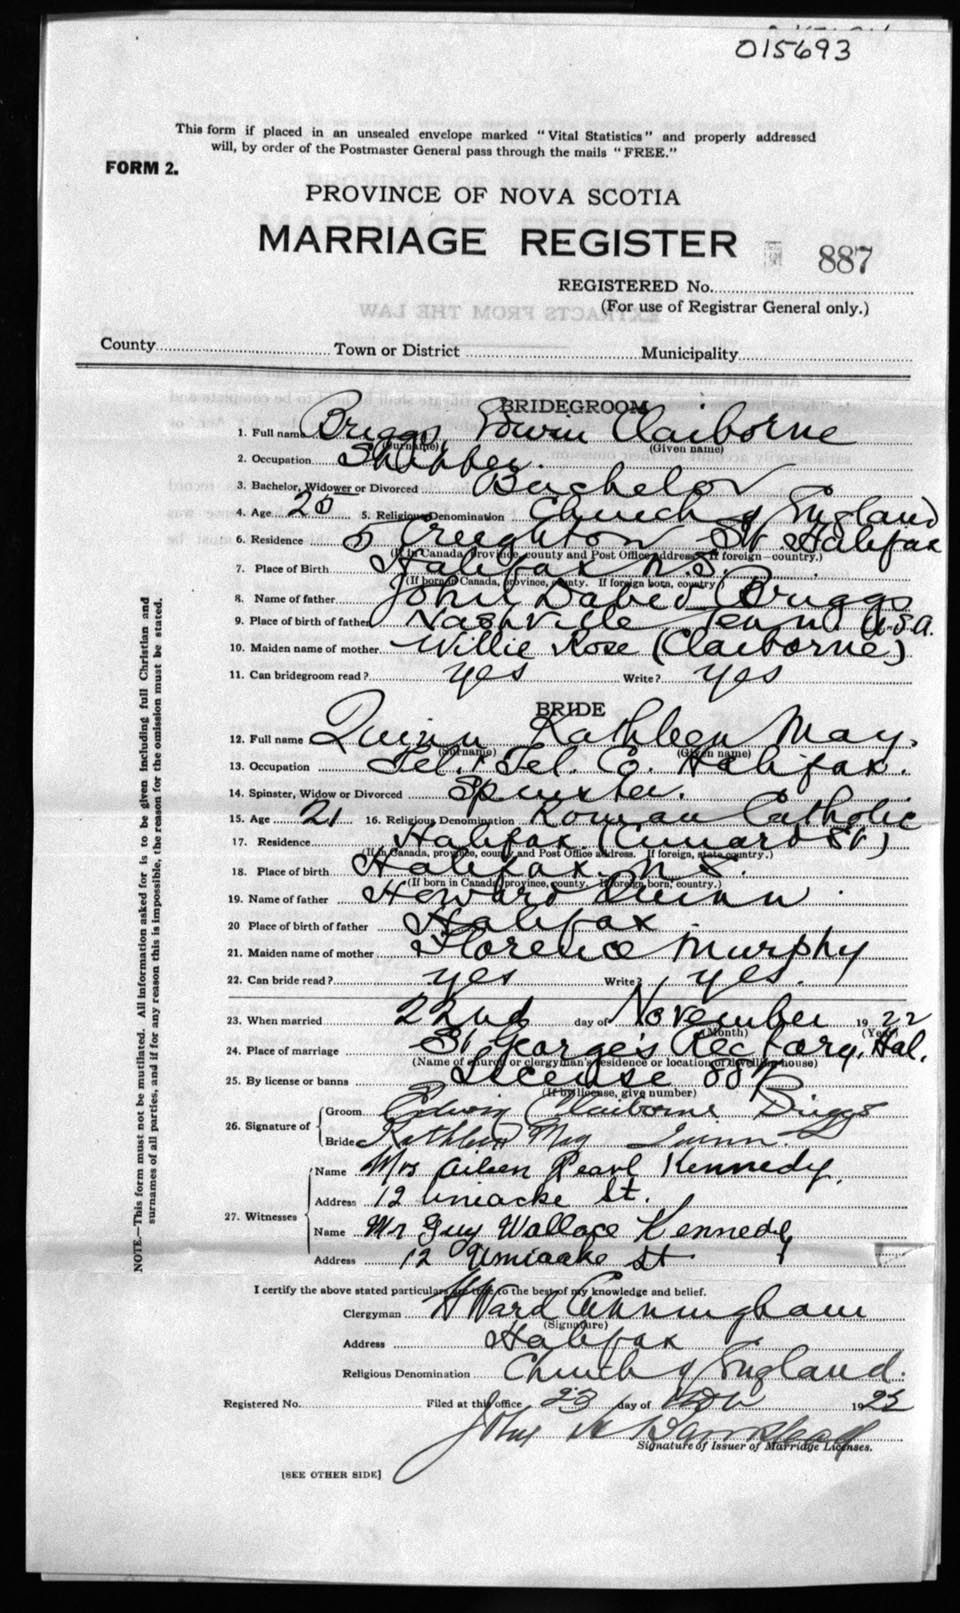 015693
This form if placed in an unsealed envelope marked "Vital Statistics" and properly addressed
will, by order of the Postmaster General pass through the mails "FREE."
FORM 2.
PROVINCE OF NOVA SCOTIA
MARRIAGE REGISTER
887
REGISTERED No.
(For use of Registrar General only.)
County Town or District Municipality
BRIDEGROOM
1. Full name Briggs Edwin Claiborne
(Surname) (Given name)
2. Occupation Shipper.
3. Bachelor, Widower or Divorced Bachelor
4. Age 25 5. Religious Denomination Church of England
6. Residence 5 Creighton St. Halifax
(If in Canada, province, county and Post Office address. If foreign—country.)
7. Place of Birth Halifax N.S.
(If born in Canada, province, county. If foreign born, country)
8. Name of father John David Briggs
9. Place of birth of father Nashville Tenn U.S.A.
10. Maiden name of mother Willie Rose (Claiborne)
11. Can bridegroom read? yes Write? yes
BRIDE
12. Full name Quinn Kathleen May.
(Surname) (Given name)
13. Occupation Tel. & Tel. Co. Halifax.
14. Spinster, Widow or Divorced Spinster.
15. Age 21 16. Religious Denomination Roman Catholic
17. Residence Halifax (Cunard St)
(If in Canada, province, county and Post Office address. If foreign, state country.)
18. Place of birth Halifax. N.S.
(If born in Canada, province, county. If foreign born, country.)
19. Name of father Howard Quinn
20 Place of birth of father Halifax
21. Maiden name of mother Florence Murphy
22. Can bride read? yes Write? yes.
23. When married 22nd day of November 1922
(Month) (Year)
24. Place of marriage St George's Rectory, Hal.
(Name of church or clergyman's residence or location of dwelling house)
25. By license or banns License
(If by license, give number)
26. Signature of Groom Edwin Claiborne Briggs
Bride Kathleen May Quinn.
27. Witnesses Name Mrs Aileen Pearl Kennedy.
Address 12 Uniacke St.
Name Mr Guy Wallace Kennedy
Address 12 Uniacke St
I certify the above stated particulars are true to the best of my knowledge and belief.
Clergyman H Ward Cunningham
(Signature)
Address Halifax
Religious Denomination Church of England.
Registered No. Filed at this office 23 day of Nov 19
John
Signature of Issuer of Marriage Licenses.
[SEE OTHER SIDE]
NOTE.—This form must not be mutilated. All information asked for is to be given including full Christian and
surnames of all parties, and if for any reason this is impossible, the reason for the omission must be stated.